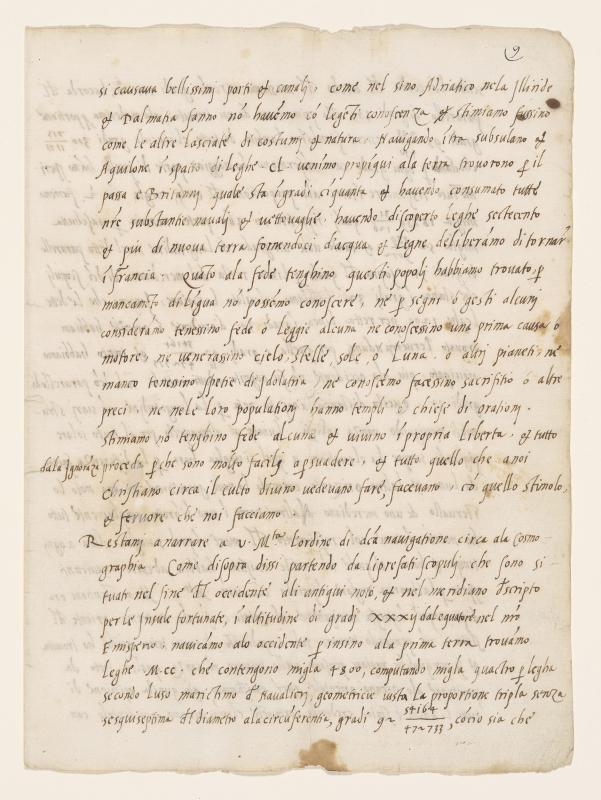 9
si causava bellissimj porti et canalj, come nel sino Adriatico nela Jlliride
et Dalmatia fanno nō havemo cō le gēti conoscenza et stimiamo fossino
come le altre lasciate di costumj et natura. Navigando ītra subsulano et
Aquilone ī spatio di leghe .cL. venimo propīqui ala terra trovorono p il
passa e Britannj, quale sta ī gradi cīquanta et havendo consumato tutte
nr̄e substantie navalj et vettovaglie, havendo discoperto leghe settecento
et piu di nuova terra fornendoci d'acqua et legne deliberāmo di tornar
ī francia. Quāto ala fede tenghino questi popolj habbiamo trovato, p
mancamēto di līgua nō possēmo conoscere, ne p segni ò gesti alcunj
considerāmo tenessino fede ò leggie alcuna ne conoscessino una prima causa ò
motore, ne venerassino cielo, stelle, sole, ò Luna, ò altrj pianeti, ne
manco tenessino spetie di Idolatria, ne conoscēmo facessino sacrifitio ò altre
preci, ne nele loro populationj hanno templi ò chiese di orationj.
stimiamo nō tenghino fede alcuna et vivino ī propria liberta, et tutto
dala Ignorāza preceda pche sono molto facilj a psuadere, et tutto quello che a noi
christiano circa il culto divino vedevano fare, facevano, cō quello stimolo,
et fervore che noi facciamo.
Restamj a narrare a v. M.ta l'ordine di dc̄a navigatione circa ala Cosmo-
graphia. Come disopra dissi partendo da li prefati scopulj che sono si-
tuati nel fine d'l occidente ali antiqui noto, et nel meridiano d'scripto
per le Insule fortunate, ī altitudine di gradj xxxij dal equatore nel nr̄o
Emisperio, navicāmo alo occidente p insino ala prima terra trovamo
leghe M.cc. che contengono migla 4800, computando migla quatro p legha
secondo l'uso maritimo d' Navalierj, geometricie iusta la proportione tripla senza
sesquiseptima d'l diametro ala circūferentia, gradi 92 54164/472733, cō cio sia che